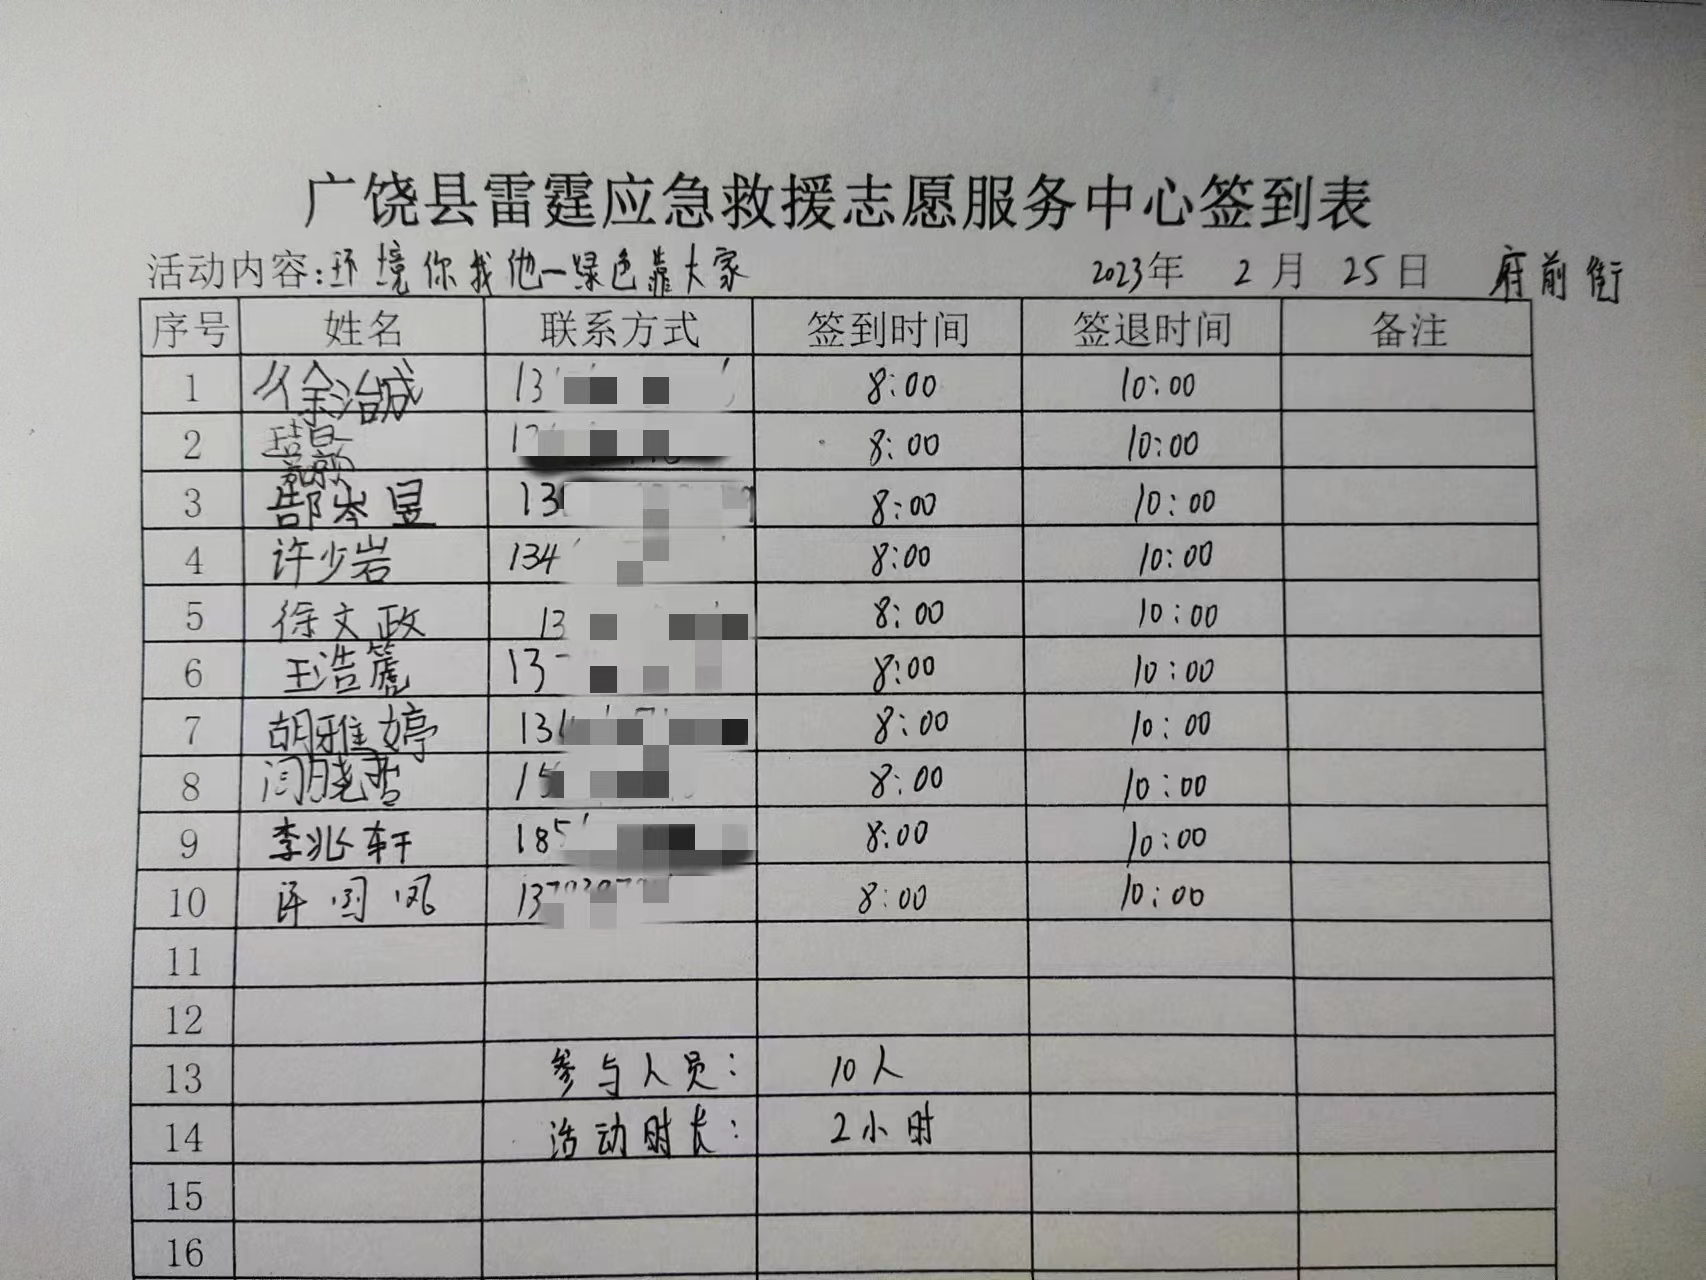 广饶县雷霆应急救援志愿服务中心签到表
活动内容:环境你我他一绿色靠大家 2023年 2月 25日 府前街
序号 姓名 联系方式 签到时间 签退时间 备注
1 徐治成 13 8:00 10:00
2 8:00 10:00
3 郜岑昱 13 8:00 10:00
4 许少岩 134 8:00 10:00
5 徐文政 13 8:00 10:00
6 王浩篪 13 8:00 10:00
7 胡雅婷 13 8:00 10:00
8 闫晓哲 15 8:00 10:00
9 李兆轩 185 8:00 10:00
10 许国凤 13 8:00 10:00
11
12
13 参与人员: 10人
14 活动时长: 2小时
15
16